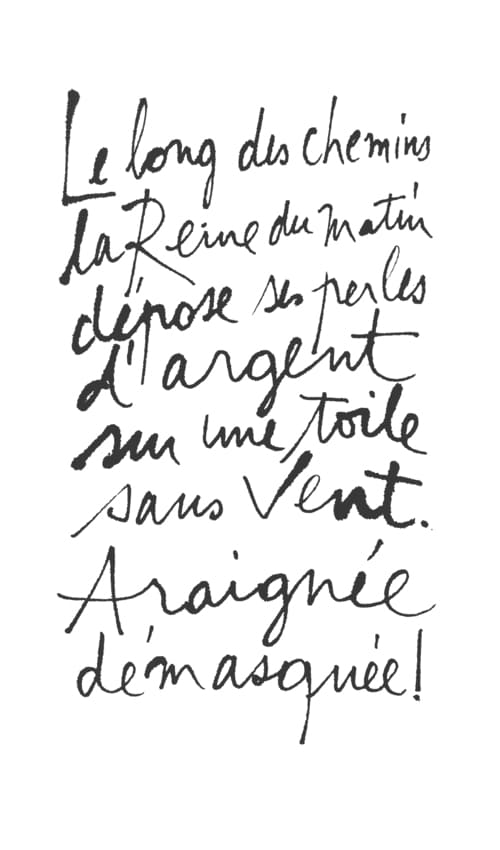 Le long des chemins
la Reine du matin
dépose ses perles
d'argent
sur une toile
sans Vent.
Araignée
démasquée!